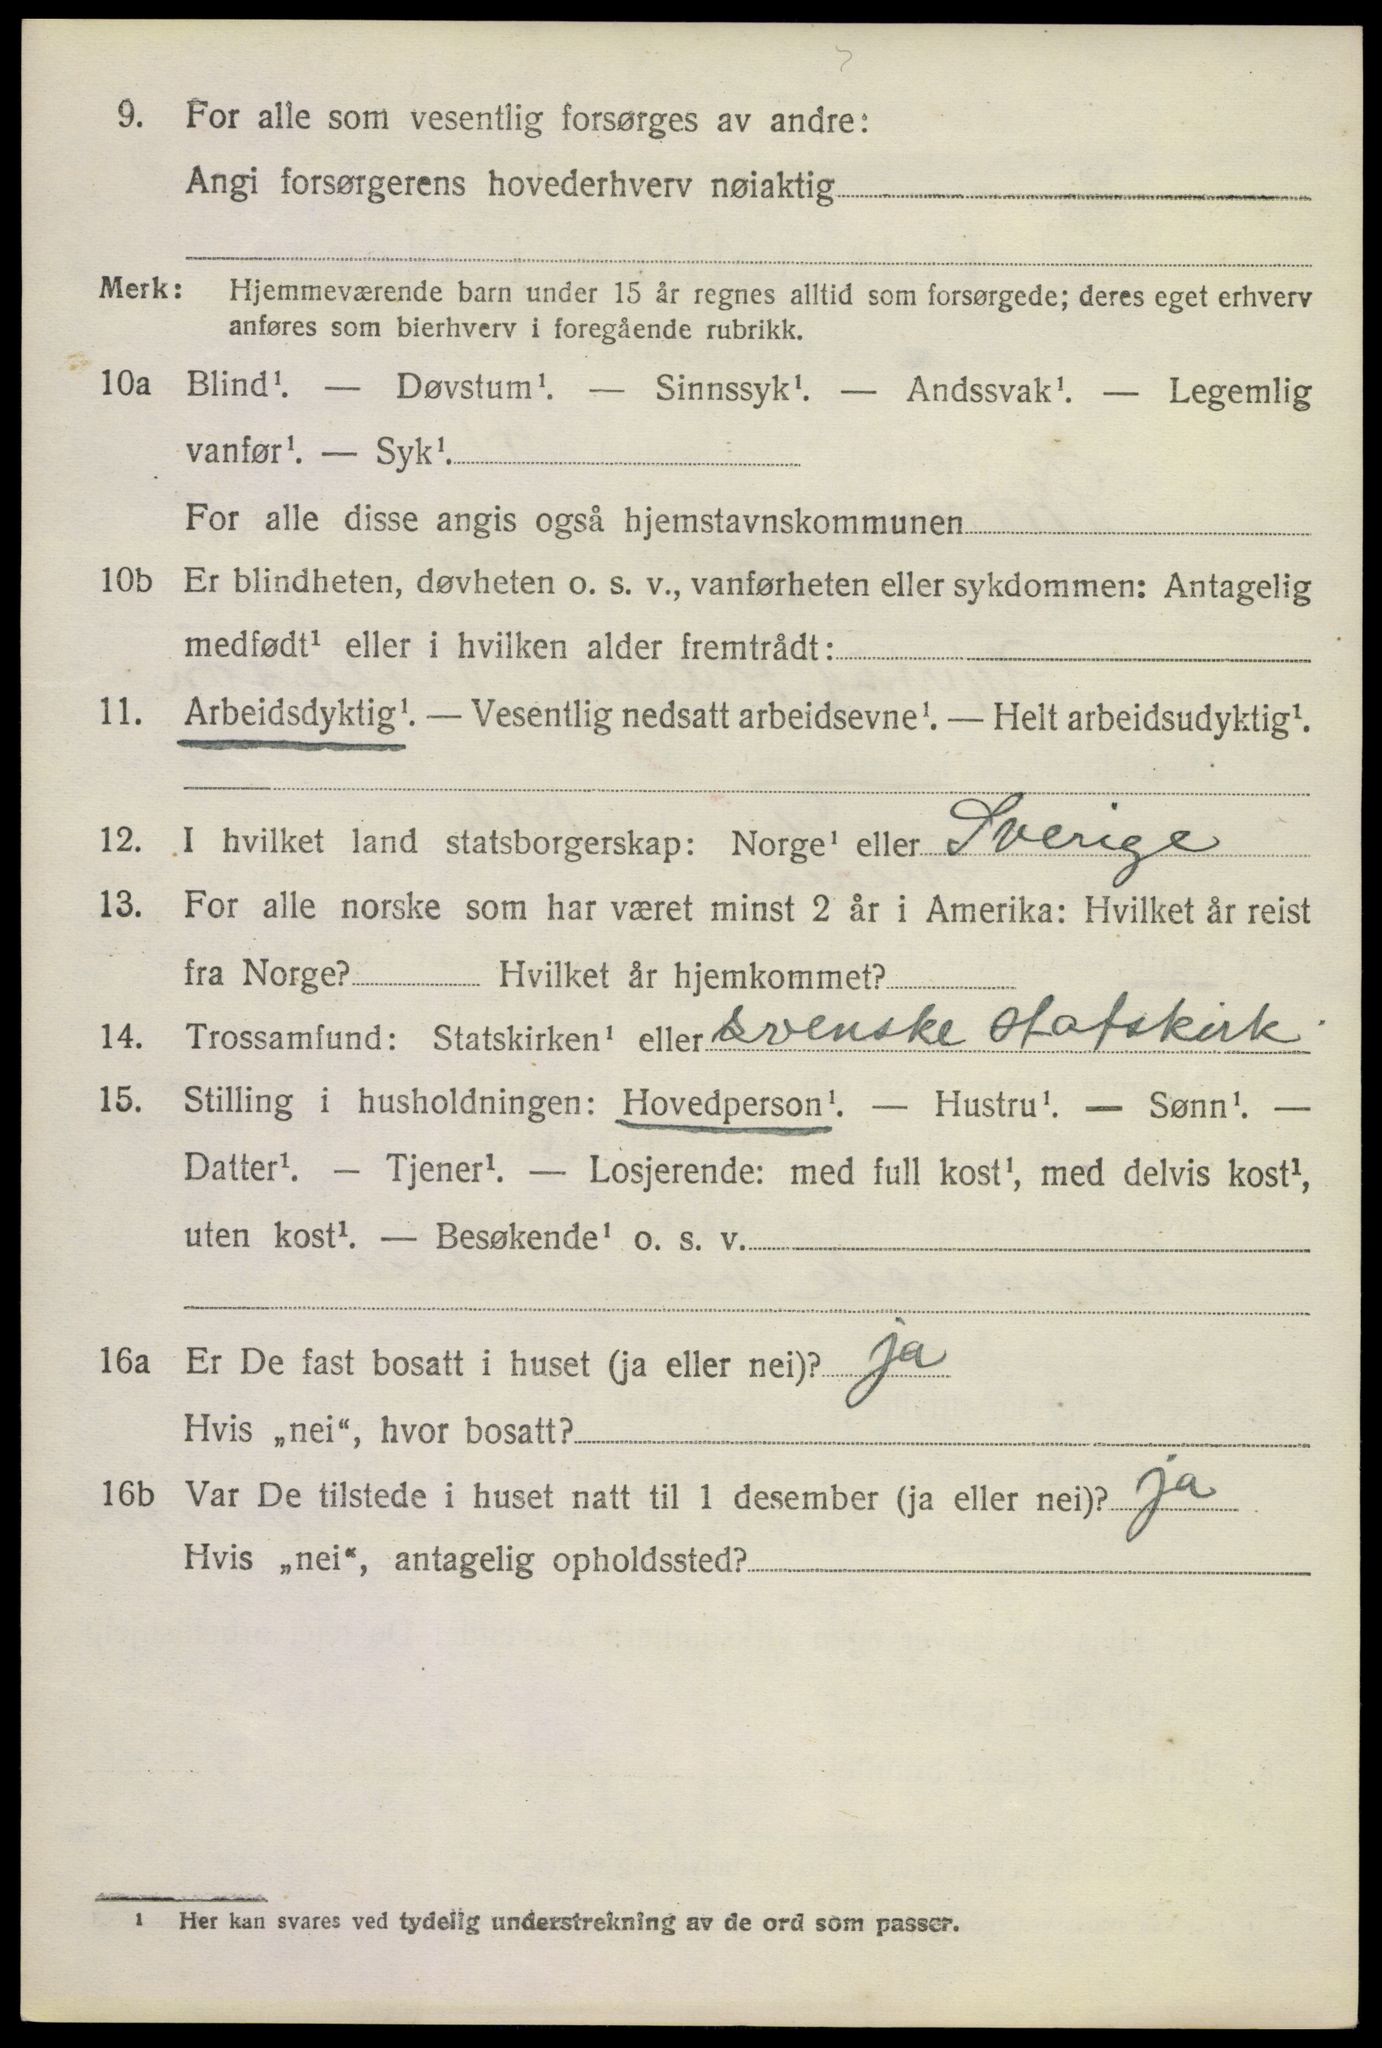 9. For alle som vesentlig forsørges av andre:
Angi forsørgerens hovederhverv nøiaktig
Merk: Hjemmeværende barn under 15 år regnes alltid som forsørgede; deres eget erhverv
anføres som bierhverv i foregående rubrikk.
10a Blind¹. — Døvstum¹. — Sinnssyk¹. — Andssvak¹. — Legemlig
vanfør¹. — Syk¹.
For alle disse angis også hjemstavnskommunen
10b Er blindheten, døvheten o. s. v., vanførheten eller sykdommen: Antagelig
medfødt¹ eller i hvilken alder fremtrådt:
11. Arbeidsdyktig¹. — Vesentlig nedsatt arbeidsevne¹. — Helt arbeidsudyktig¹.
12. I hvilket land statsborgerskap: Norge¹ eller Sverige
13. For alle norske som har været minst 2 år i Amerika: Hvilket år reist
fra Norge? Hvilket år hjemkommet?
14. Trossamfund: Statskirken¹ eller svenske statskirk
15. Stilling i husholdningen: Hovedperson¹. — Hustru¹. — Sønn¹. —
Datter¹. — Tjener¹. — Losjerende: med full kost¹, med delvis kost¹,
uten kost¹. — Besøkende¹ o. s. v.
16a Er De fast bosatt i huset (ja eller nei)? ja
Hvis „nei“, hvor bosatt?
16b Var De tilstede i huset natt til 1 desember (ja eller nei)? ja
Hvis „nei“, antagelig opholdssted?
¹ Her kan svares ved tydelig understrekning av de ord som passer.